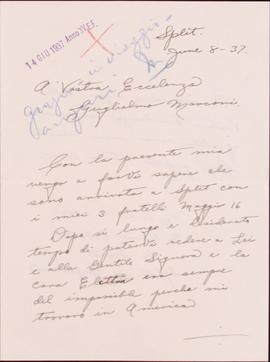 14 GIU 1937 Anno XV.E.F.
Split.
June 8-37.
A Vostra Eccelenza
Guglielmo Marconi.
Con la presente mia
vengo a farvi sapere che
sono arrivata a Split con
i miei 3 fratelli Maggio 16
Dopo si lungo e desiderato
tempo di potervi vedere a Lei
e alla Gentile Signora e la
cara Elettra era sempre
del impossibile perche mi
trovavo in America